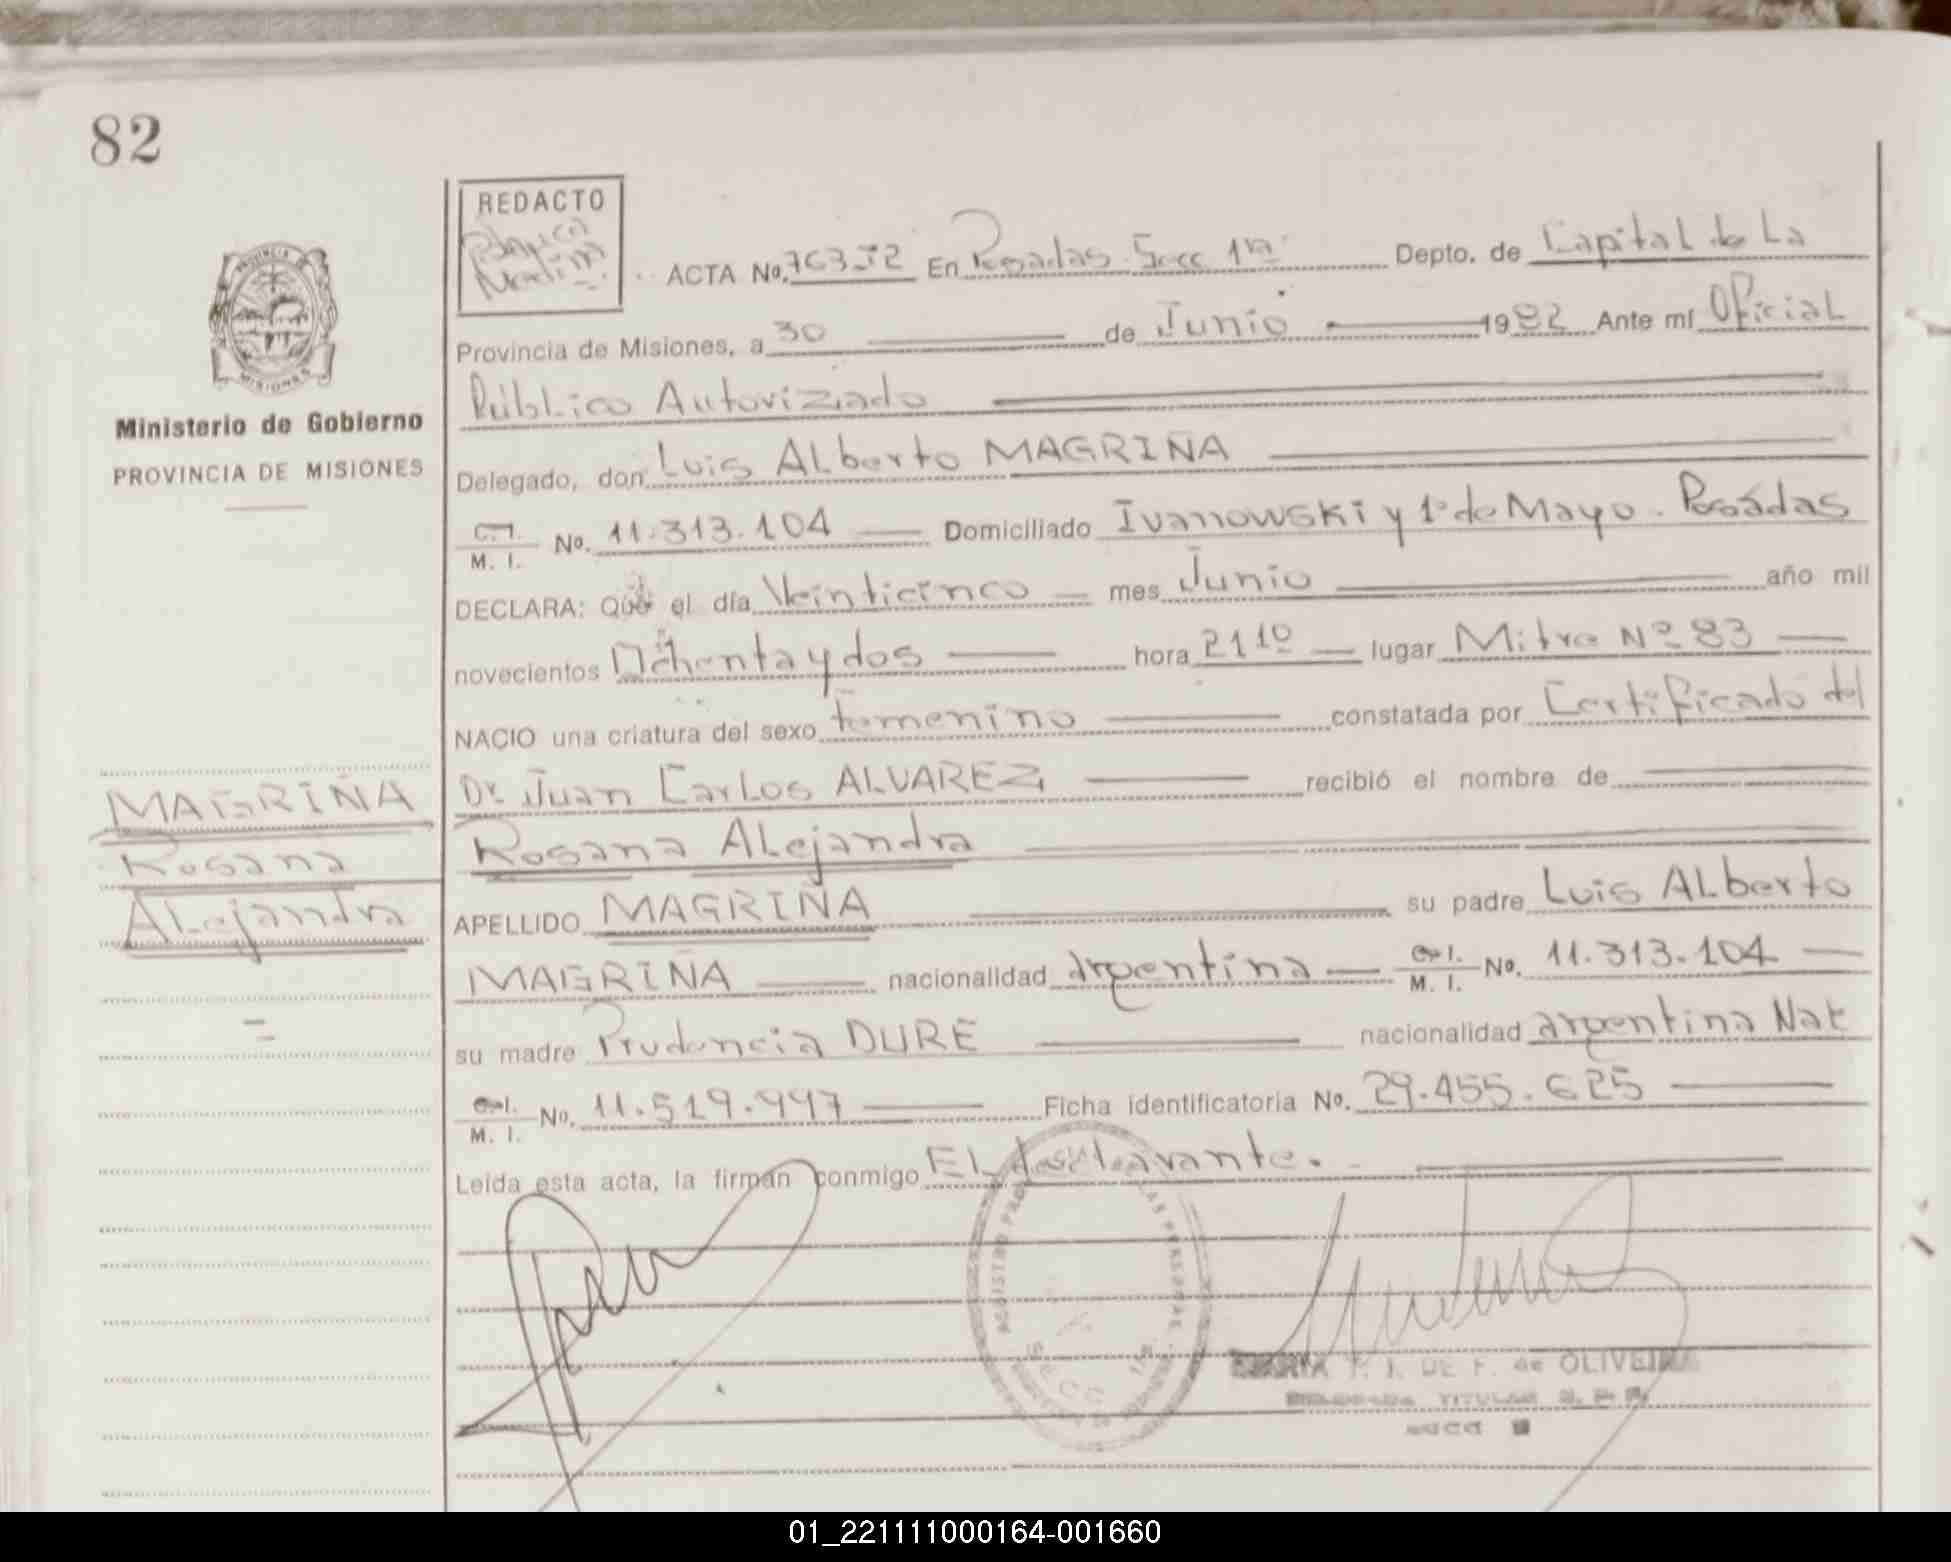 82
REDACTO
PROVINCIA DE
MISIONES
Ministerio de Gobierno
PROVINCIA DE MISIONES
ACTA No. 763-T2 En Posadas Secc 1ra Depto. de Capital de La
Provincia de Misiones, a 30 de Junio 1982 Ante mí Oficial
Público Autorizado
Delegado, don Luis Alberto MAGRIÑA
C.I. M. I. No. 11.313.104 Domiciliado Ivanowski y 1º de Mayo. Posadas
DECLARA: Que el día Veinticinco mes Junio año mil
novecientos Ochenta y dos hora 21 10 lugar Mitre Nº 83
NACIO una criatura del sexo femenino constatada por Certificado del
Dr. Juan Carlos ALVAREZ recibió el nombre de
Rosana Alejandra
APELLIDO MAGRIÑA su padre Luis Alberto
MAGRIÑA nacionalidad argentina C.I. M. I. No. 11.313.104
su madre Prudencia DURE nacionalidad argentina Nat
C.I. M. I. No. 11.519.997 Ficha identificatoria No. 29.455.625
Leída esta acta, la firman conmigo El declarante.
MAGRIÑA
Rosana
Alejandra
DE F. de OLIVEIRA
TITULAR
01_221111000164-001660